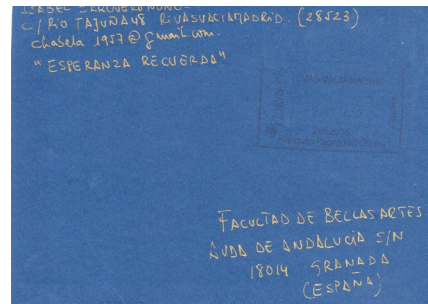 C/ RIO TAJUÑA 48 RIVASVACIAMADRID. (28523)
chabela 1957@gmail.com.
"ESPERANZA RECUERDA"
FACULTAD DE BELLAS ARTES
AVDA DE ANDALUCIA S/N
18014 GRANADA
(ESPAÑA)